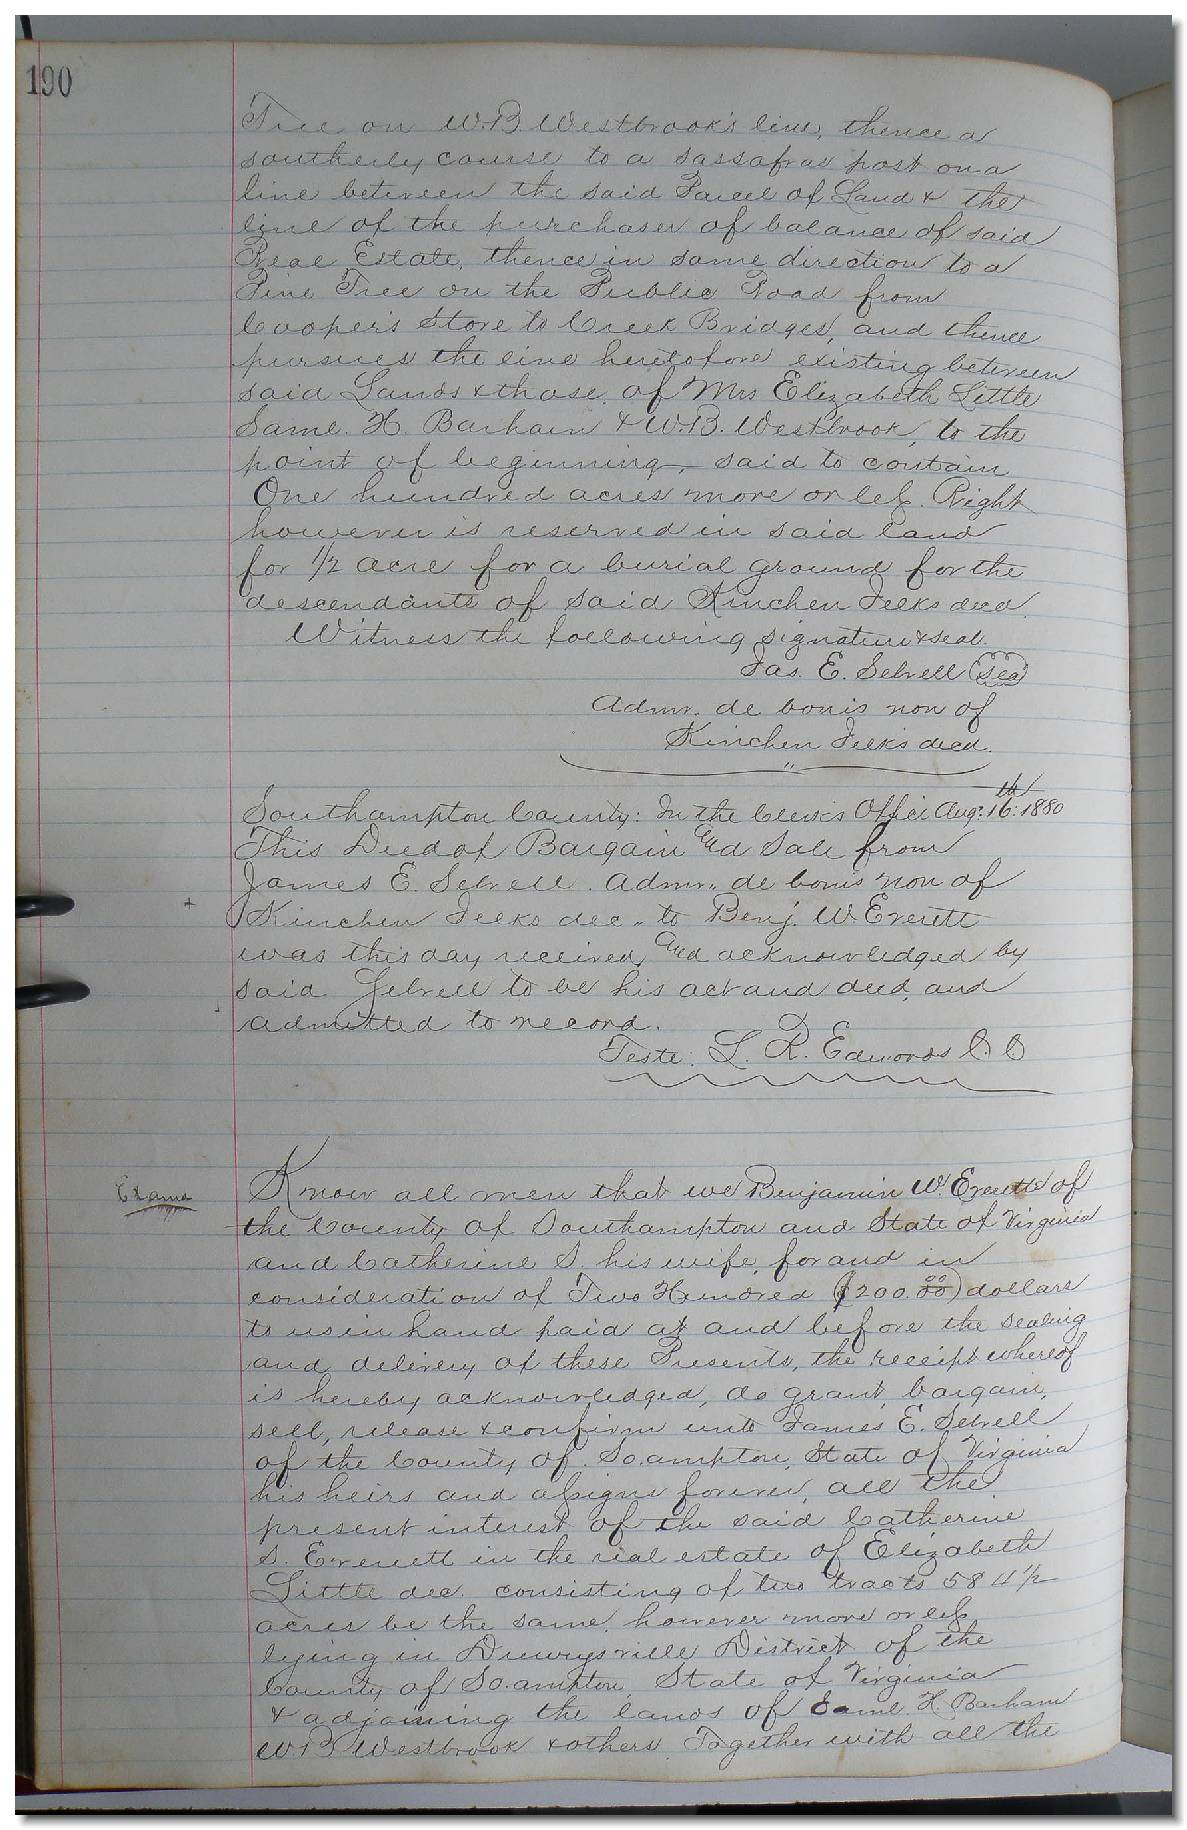 190
Tree on W.B. Westbrook's line, thence a
southerly course to a sassafras post on a
line between the said Parcel of Land & the
line of the purchaser of balance of said
Real Estate, thence in same direction to a
Pine Tree on the Public Road from
Cooper's Store to Creek Bridges, and thence
pursues the line heretofore existing between
said Lands & those of Mrs Elizabeth Little
Saml. H. Barham & W.B. Westbrook, to the
point of beginning, said to contain
One hundred acres more or less. Right
however is reserved in said land
for 1/2 acre for a burial ground for the
descendants of said Kinchen Jelks decd.
Witness the following signature & seal.
Jas. E. Sebrell (Seal)
Admr. de bonis non of
Kinchen Jelks decd.
Southampton County: In the Clerk's Office Aug: 16th: 1880
This Deed of Bargain and Sale from
James E. Sebrell. Admr. de bonis non of
Kinchen Jelks dec. to Benj. W. Everett
was this day received and acknowledged by
said Sebrell to be his act and deed, and
admitted to record.
Teste: L. R. Edwards C. C
Examd
Know all men that we Benjamin W. Everett of
the County of Southampton and State of Virginia
and Catherine S. his wife, for and in
consideration of Two Hundred ($200.00) dollars
to us in hand paid at and before the sealing
and delivery of these Presents, the receipt whereof
is hereby acknowledged, do grant, bargain,
sell, release & confirm unto James E. Sebrell
of the County of So.ampton, State of Virginia
his heirs and assigns forever, all the
present interest of the said Catherine
S. Everett in the real estate of Elizabeth
Little dec. consisting of two tracts 584 1/2
acres be the same, however more or less
lying in Drewrysville District of the
County of So.ampton, State of Virginia
& adjoining the lands of Saml. H. Barham
W.B. Westbrook & others Together with all the